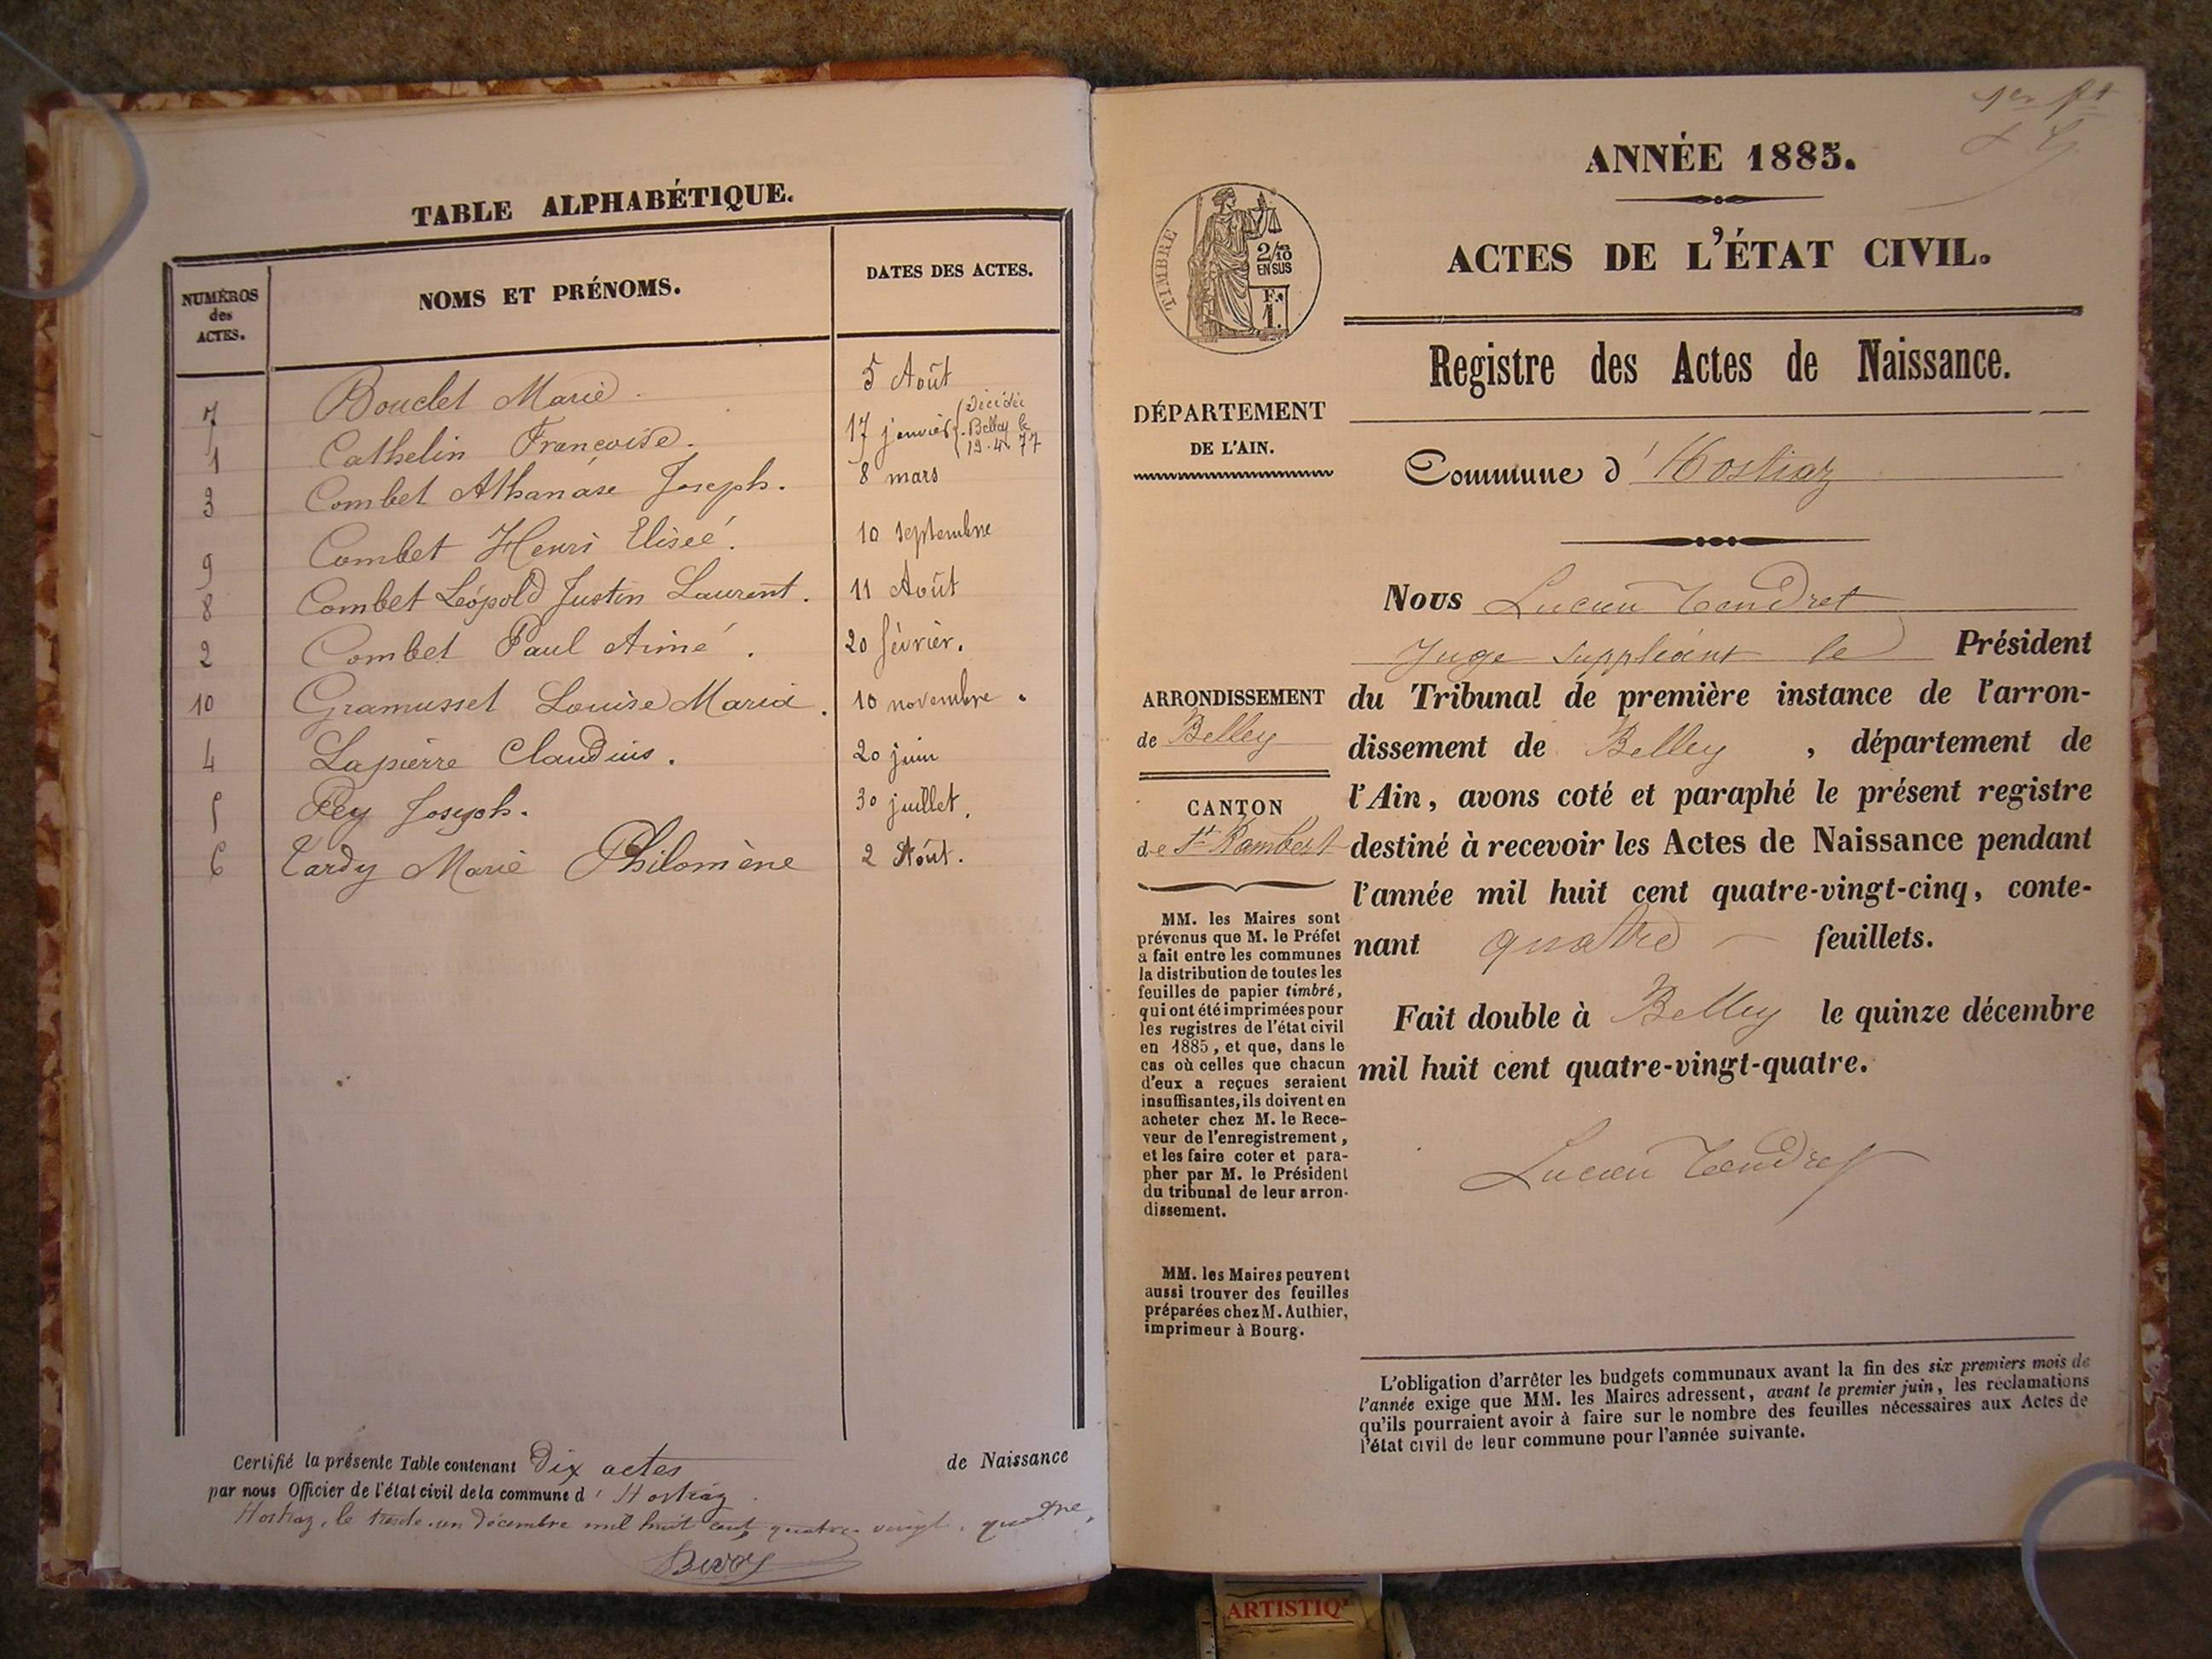 TABLE ALPHABÉTIQUE.
NUMÉROS des ACTES.
NOMS ET PRÉNOMS.
DATES DES ACTES.
7 Bouclet Marie. 5 Août
1 Cathelin Françoise. 17 janvier (Décédée Belley le 19.4.77
3 Combet Athanase Joseph. 8 mars
9 Combet Henri Eliseé. 10 septembre
8 Combet Léopold Justin Laurent. 11 Août
2 Combet Paul Aimé. 20 février.
10 Gramusset Louise Maria. 10 novembre.
4 Lapierre Claudius. 20 juin
5 Pey Joseph. 30 juillet.
6 Tardy Marie Philomène 2 Août.
Certifié la présente Table contenant Dix actes de Naissance
par nous Officier de l'état civil de la commune d'Hostiaz.
Hostiaz, le trente-un décembre mil huit cent quatre-vingt-quatre,
1er ft
ANNÉE 1885.
ACTES DE L'ÉTAT CIVIL.
TIMBRE
2/10
EN SUS
F.
1.
Registre des Actes de Naissance.
DÉPARTEMENT
DE L'AIN.
Commune d'Hostiaz
Nous Lucien Tendret
Juge suppléant le Président
du Tribunal de première instance de l'arron-
dissement de Belley, département de
l'Ain, avons coté et paraphé le présent registre
destiné à recevoir les Actes de Naissance pendant
l'année mil huit cent quatre-vingt-cinq, conte-
nant quatre feuillets.
Fait double à Belley le quinze décembre
mil huit cent quatre-vingt-quatre.
Lucien Tendret
ARRONDISSEMENT
de Belley
CANTON
de St Rambert
MM. les Maires sont
prévenus que M. le Préfet
a fait entre les communes
la distribution de toutes les
feuilles de papier timbré,
qui ont été imprimées pour
les registres de l'état civil
en 1885, et que, dans le
cas où celles que chacun
d'eux a reçues seraient
insuffisantes, ils doivent en
acheter chez M. le Rece-
veur de l'enregistrement,
et les faire coter et para-
pher par M. le Président
du tribunal de leur arron-
dissement.
MM. les Maires peuvent
aussi trouver des feuilles
préparées chez M. Authier,
imprimeur à Bourg.
L'obligation d'arrêter les budgets communaux avant la fin des six premiers mois de
l'année exige que MM. les Maires adressent, avant le premier juin, les réclamations
qu'ils pourraient avoir à faire sur le nombre des feuilles nécessaires aux Actes de
l'état civil de leur commune pour l'année suivante.
ARTISTIQ